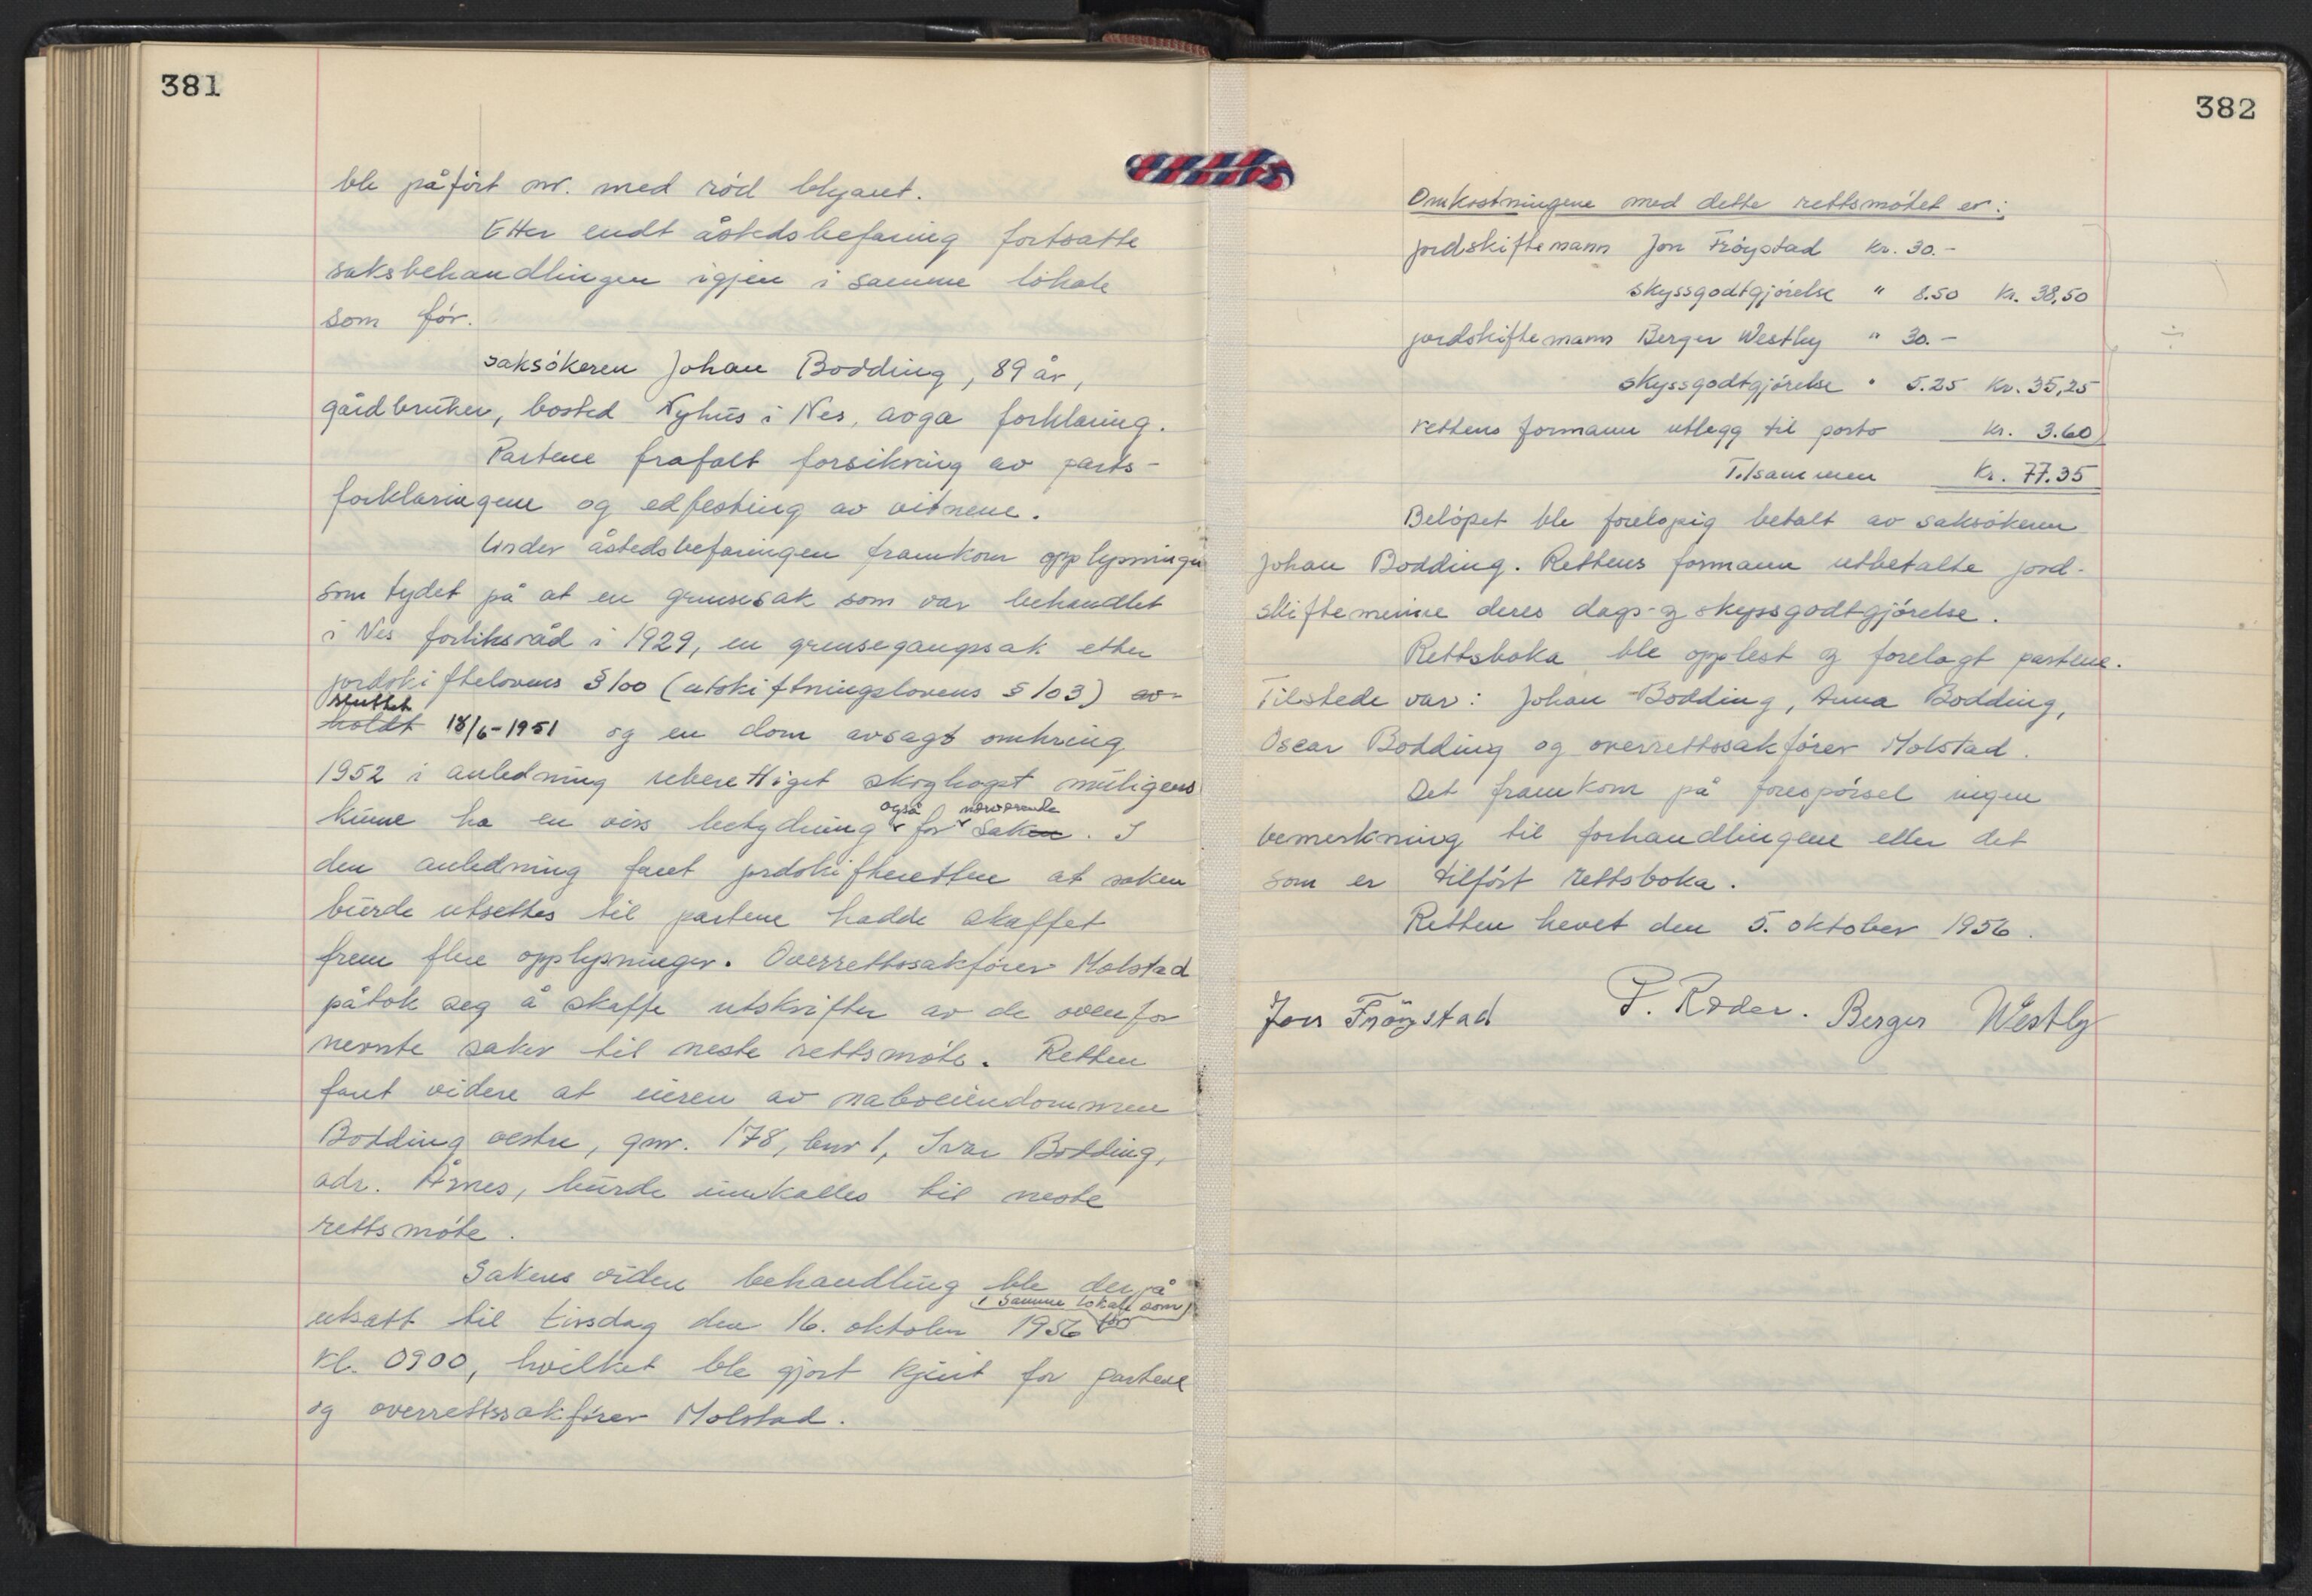 381
ble påført nr. med rød blyant.
Etter endt åstedsbefaring fortsatte
saksbehandlingen igjen i samme lokale
som før.
Saksøkeren Johan Bodding, 89 år,
gårdbruker, bosted Nyhus i Nes, avga forklaring.
Partene frafalt forsikring av parts-
forklaringene og edfesting av vitnene.
Under åstedsbefaringen framkom opplysninger
som tydet på at en grensesak som var behandlet
i Nes forliksråd i 1929, en grensegangssak etter
jordskiftelovens § 100 (utskiftningslovens § 103) av-
sluttet
holdt 18/6-1951 og en dom avsagt omkring
1952 i anledning uberettiget skoghogst muligens
også nærværende
kunne ha en viss betydning for saken. I
den anledning fant jordskifteretten at saken
burde utsettes til partene hadde skaffet
frem flere opplysninger. Overrettssakfører Molstad
påtok seg å skaffe utskrifter av de ovenfor
nevnte saker til neste rettsmøte. Retten
fant videre at eieren av naboeiendommen
Bodding vestre, gnr. 178, bnr 1, Ivar Bodding,
adr. Årnes, burde innkalles til neste
rettsmøte.
Sakens videre behandling ble derpå
i samme lokale som
utsatt til tirsdag den 16. oktober 1956 før
kl. 0900, hvilket ble gjort kjent for partene
og overrettssakfører Molstad.
382
Omkostningene med dette rettsmøtet er:
jordskiftemann Jon Frøystad kr. 30.-
skyssgodtgjørelse " 8.50 kr. 38,50
jordskiftemann Berger Westby " 30.-
skyssgodtgjørelse " 5.25 kr. 35,25
rettens formann utlegg til porto kr. 3.60
Tilsammen kr. 77.35
Beløpet ble foreløpig betalt av saksøkeren
Johan Bodding. Rettens formann utbetalte jord-
skiftemennene deres dags- og skyssgodtgjørelse.
Rettsboka ble opplest og forelagt partene.
Tilstede var: Johan Bodding, Anna Bodding,
Oscar Bodding og overrettssakfører Molstad.
Det framkom på forespørsel ingen
bemerkning til forhandlingene eller det
som er tilført rettsboka.
Retten hevet den 5. oktober 1956.
Jon Frøystad P. Røder. Berger Westby